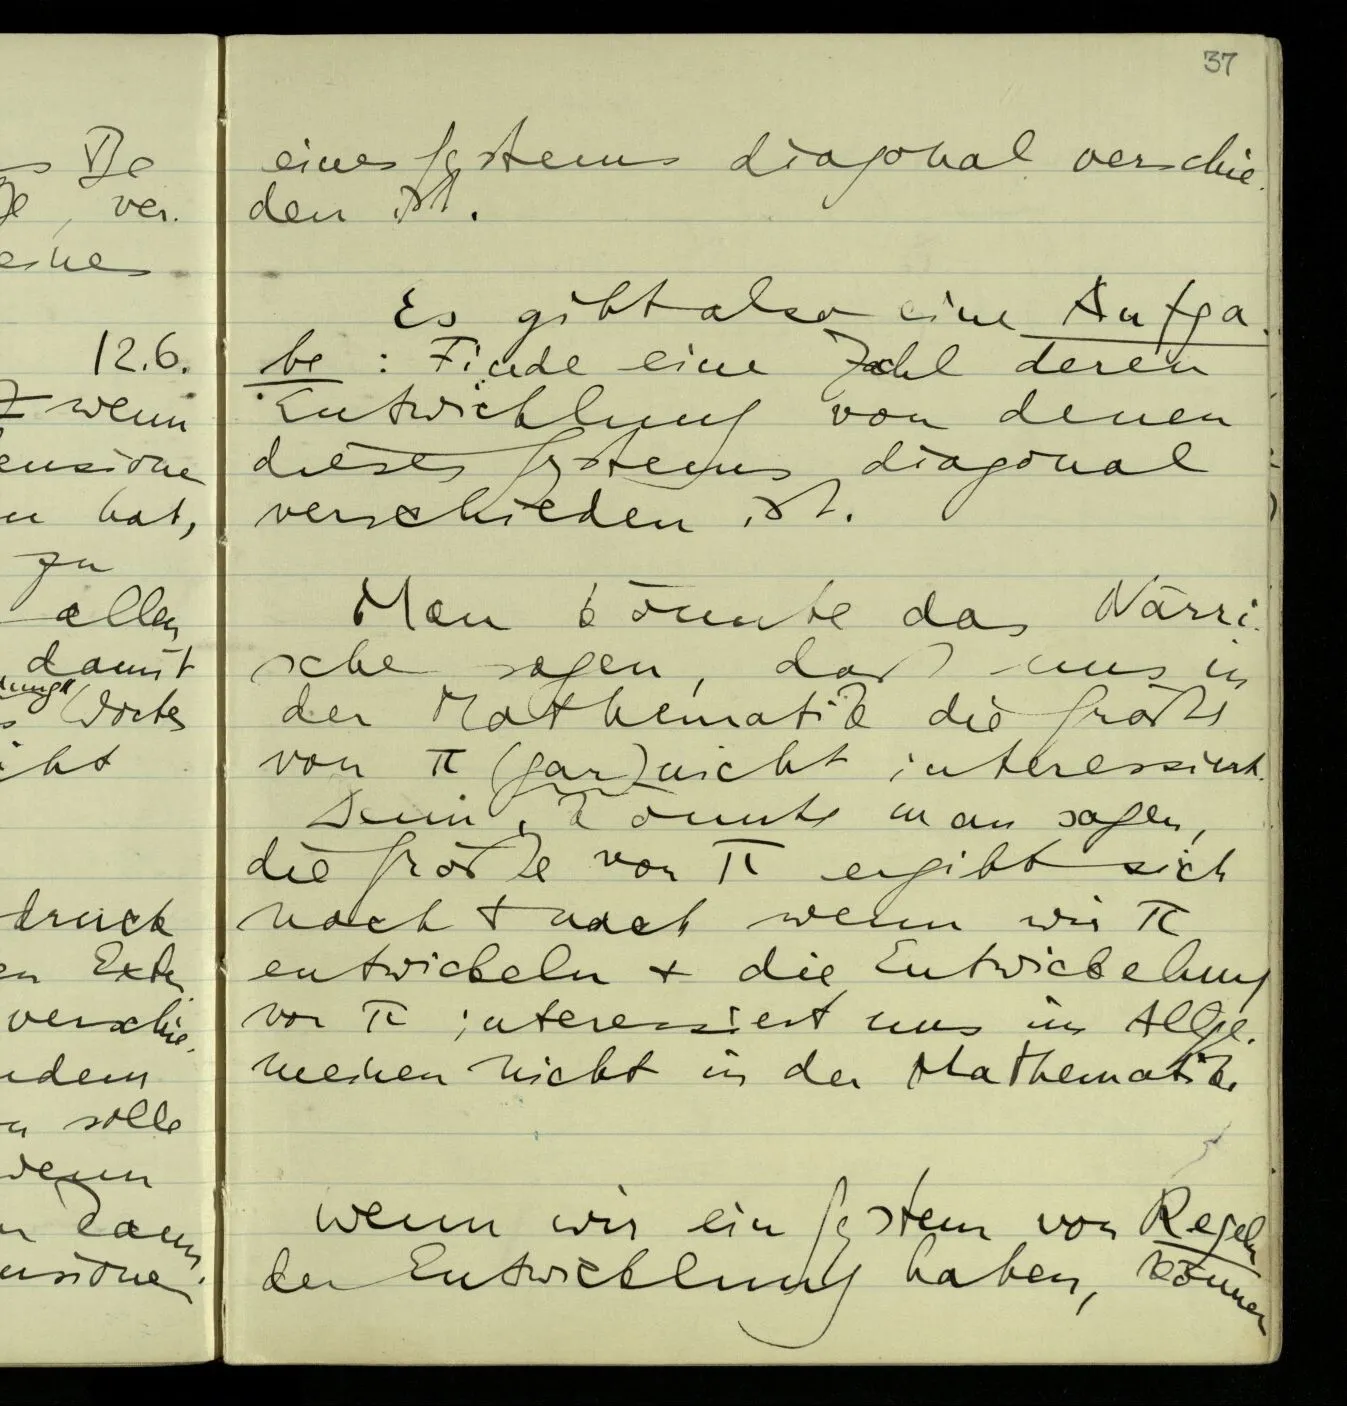 s Be
e, ver.
eines
12.6.
wenn
ensione
n hat,
zu
allen
damit
ung"
s Wortes
icht
druck
en Exten
verschie.
ndem
n solle
wenn
n kann.
ensionen
37
eines Systems diagonal verschie.
den ist.
Es gibt also eine Aufga.
be : Finde eine Zahl deren
Entwicklung von denen
dieses Systems diagonal
verschieden ist.
Man könnte das Närri.
sche sagen, daß uns in
der Mathematik die Größe
von π (gar) nicht interessiert.
Denn, könnte man sagen,
die Größe von π ergibt sich
nach + nach wenn wir π
entwickeln + die Entwickelung
von π interessiert uns im Allge.
meinen nicht in der Mathematik.
Wenn wir ein System von Regeln
der Entwicklung haben, können